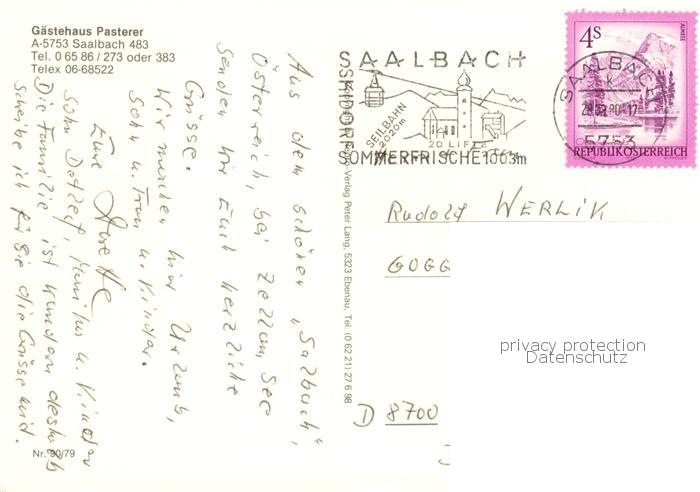 Gästehaus Pasterer
A-5753 Saalbach 483
Tel. 0 65 86 / 273 oder 383
Telex 06-68522
Aus dem schönen „Salbach",
Österreich, bei Zell am See
senden wir Euch herzliche
Grüsse.
Wir machen hier Urlaub,
Sohn u. Frau u. Kinder.
Eure
Sohn Detlef, Familie u. Kinder
Die Familie ist wandern deshalb
scheibe ich für sie die Grüsse mit.
Nr. 90/79
Verlag Peter Lang, 5323 Ebenau, Tel. (0 62 21) 27 6 98
SAALBACH
SKIDORF
SEILBAHN
2020m
20 LIFTE
SOMMERFRISCHE 1003m
SAALBACH
k
5753
4S
ALMSEE
REPUBLIK ÖSTERREICH
Rudolf WERLIK
GOGG
D 8700
privacy protection
Datenschutz